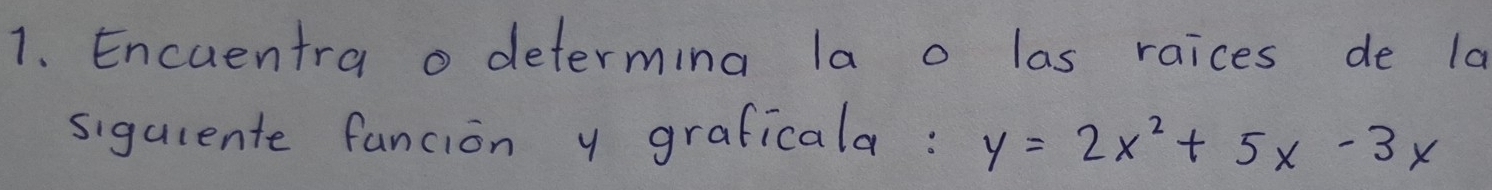 1. Encuentra o determina la o las raíces de la
siguiente función y grafícala : y = 2x² + 5x - 3x